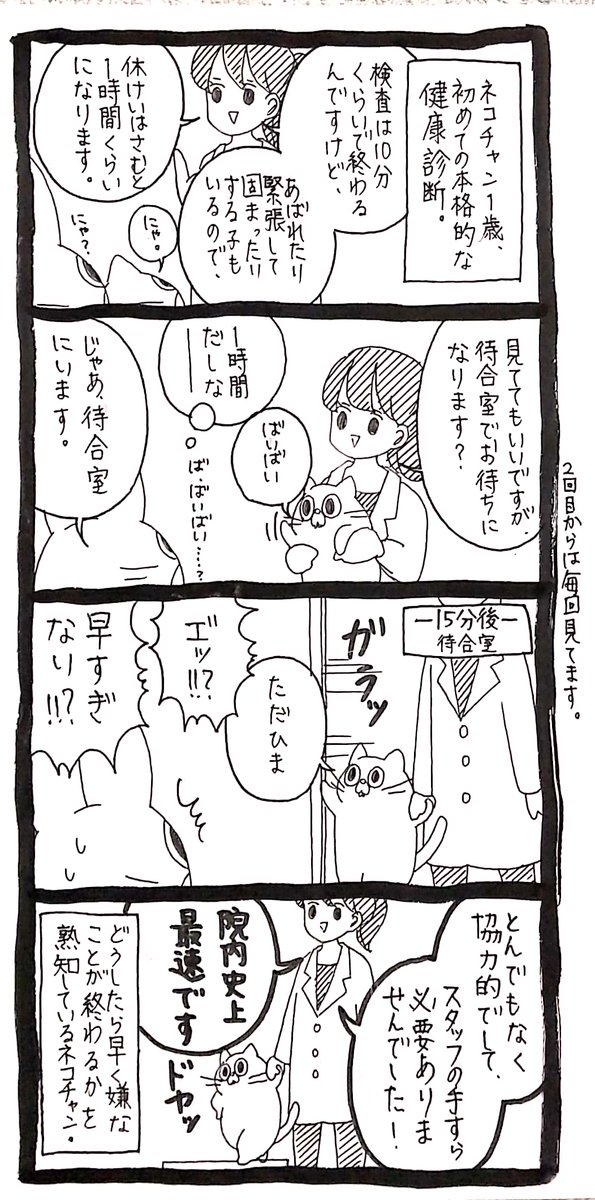 ネコチャン1歳、
初めての本格的な
健康診断。
検査は10分
くらいで終わる
んですけど、
あばれたり
緊張して
固まったり
する子も
いるので、
休けいはさむと
1時間くらい
になります。
にゃ。
にゃ?
見ててもいいですが、
待合室でお待ちに
なります?
ばいばい
1時間
だしな
ー
ば、ばいばい…?
じゃあ、待合室
にいます。
2回目からは毎回見てます。
ー15分後ー
待合室
ガラッ
ただひま
エッ!!?
早すぎ
ない!!?
とんでもなく
協力的でして、
スタッフの手すら
必要ありま
せんでした!
院内史上
最速です
ドヤッ
どうしたら早く嫌な
ことが終わるかを
熟知しているネコチャン。